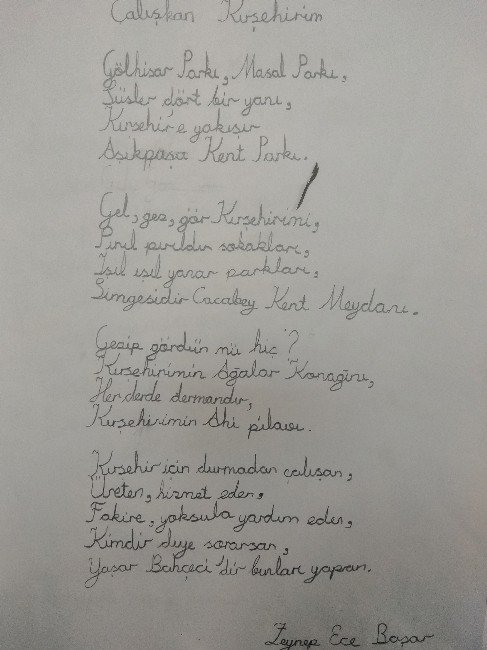 Çalışkan Kırşehirim
Gölhisar Parkı, Masal Parkı,
Süsler dört bir yanı,
Kırşehir'e yakışır
Aşıkpaşa Kent Parkı.
Gel, gez, gör Kırşehirimi,
Pırıl pırıldır sokakları,
Işıl ışıl yanar parkları,
Simgesidir Cacabey Kent Meydanı.
Gezip gördün mü hiç?
Kırşehirimin Ağalar Konağını,
Her derde dermandır,
Kırşehirimin Ahi pilavı.
Kırşehir için durmadan çalışan,
Üreten, hizmet eden,
Fakire, yoksula yardım eden,
Kimdir diye sorarsan,
Yaşar Bahçeci'dir bunları yapan.
Zeynep Ece Başar